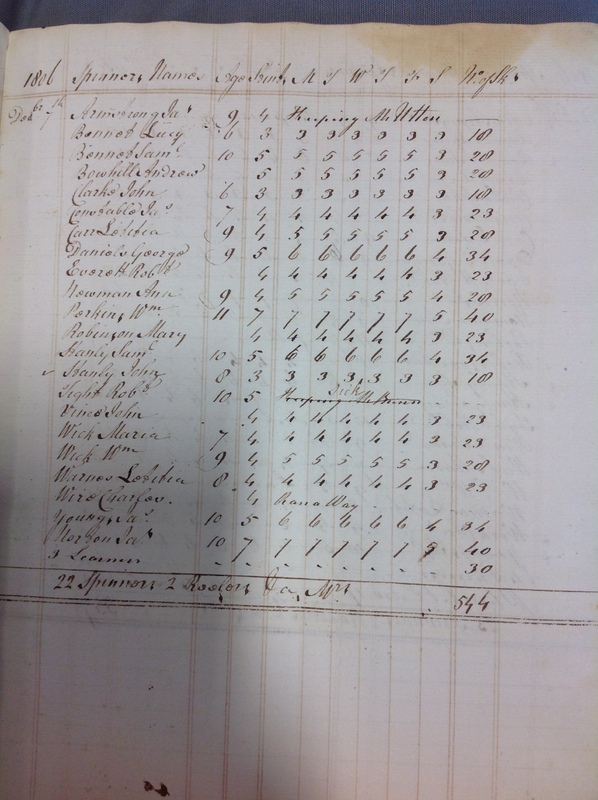 1806 Spinners Names Age Stint M T W T Fr S No of Sks
Decr 7th Armstrong Jas 9 4 Keeping Mr Utton —
Bennet Lucy 6 3 3 3 3 3 3 3 18
Bennet Saml 10 5 5 5 5 5 5 3 28
Bowhill Andrew 5 5 5 5 5 5 3 28
Clarke John 6 3 3 3 3 3 3 3 18
Constable Jas 7 4 4 4 4 4 4 3 23
Carr Letitia 9 4 5 5 5 5 5 3 28
Daniels George 9 5 6 6 6 6 6 4 34
Everett Robt 4 4 4 4 4 4 3 23
Newman Ann 9 4 5 5 5 5 5 4 28
Perkins Wm 11 7 7 7 7 7 7 5 40
Robinson Mary 4 4 4 4 4 4 3 23
Stanly Saml 10 5 6 6 6 6 6 4 34
Stanly John 8 3 3 3 3 3 3 3 18
Tight Robt 10 5 Keeping Mr Sick
Vines John 4 4 4 4 4 4 3 23
Wick Maria 7 4 4 4 4 4 4 3 23
Wick Wm 9 4 5 5 5 5 5 3 28
Warnes Letitia 8 4 4 4 4 4 4 3 23
Wire Charles. 4 Ran a Way
Youngs Jas 10 5 6 6 6 6 6 4 34
Jas 10 7 7 7 7 7 7 5 40
3 Learners 30
22 Spinners 2 Reelers 544